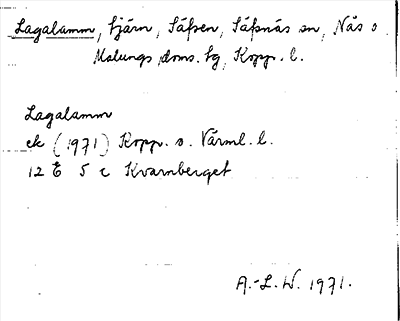 Lagalamm, tjärn, Säfsen, Säfsnäs sn, Nås o
Malungs doms. tg, Kopp. l.
Lagalamm
ek (1971) Kopp. o. Värml. l.
12 E 5 c Kvarnberget
A.-L. W. 1971.